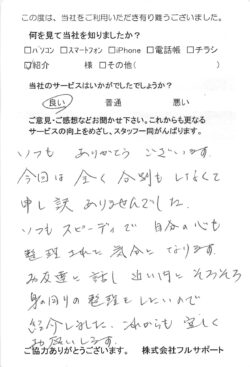 この度は、当社をご利用いただき有り難うございました。
何を見て当社を知りましたか?
□パソコン □スマートフォン □iPhone □電話帳 □チラシ
☑紹介 様 □その他( )
当社のサービスはいかがでしたでしょうか?
良い 普通 悪い
ご意見・ご感想などお聞かせ下さい。これからも更なる
サービスの向上をめざし、スタッフ一同がんばります。
いつも ありがとう ございます。
今回は 全く 分別も しなくて
申し訳 ありませんでした。
いつも スピーディで 自分の心も
整理された 気分と なります。
お友達と 話し 近い内と そろそろ
身の回りの 整理を したいので
紹介しました。これからも 宜しく
お願いします。
ご協力ありがとうございます。 株式会社フルサポート